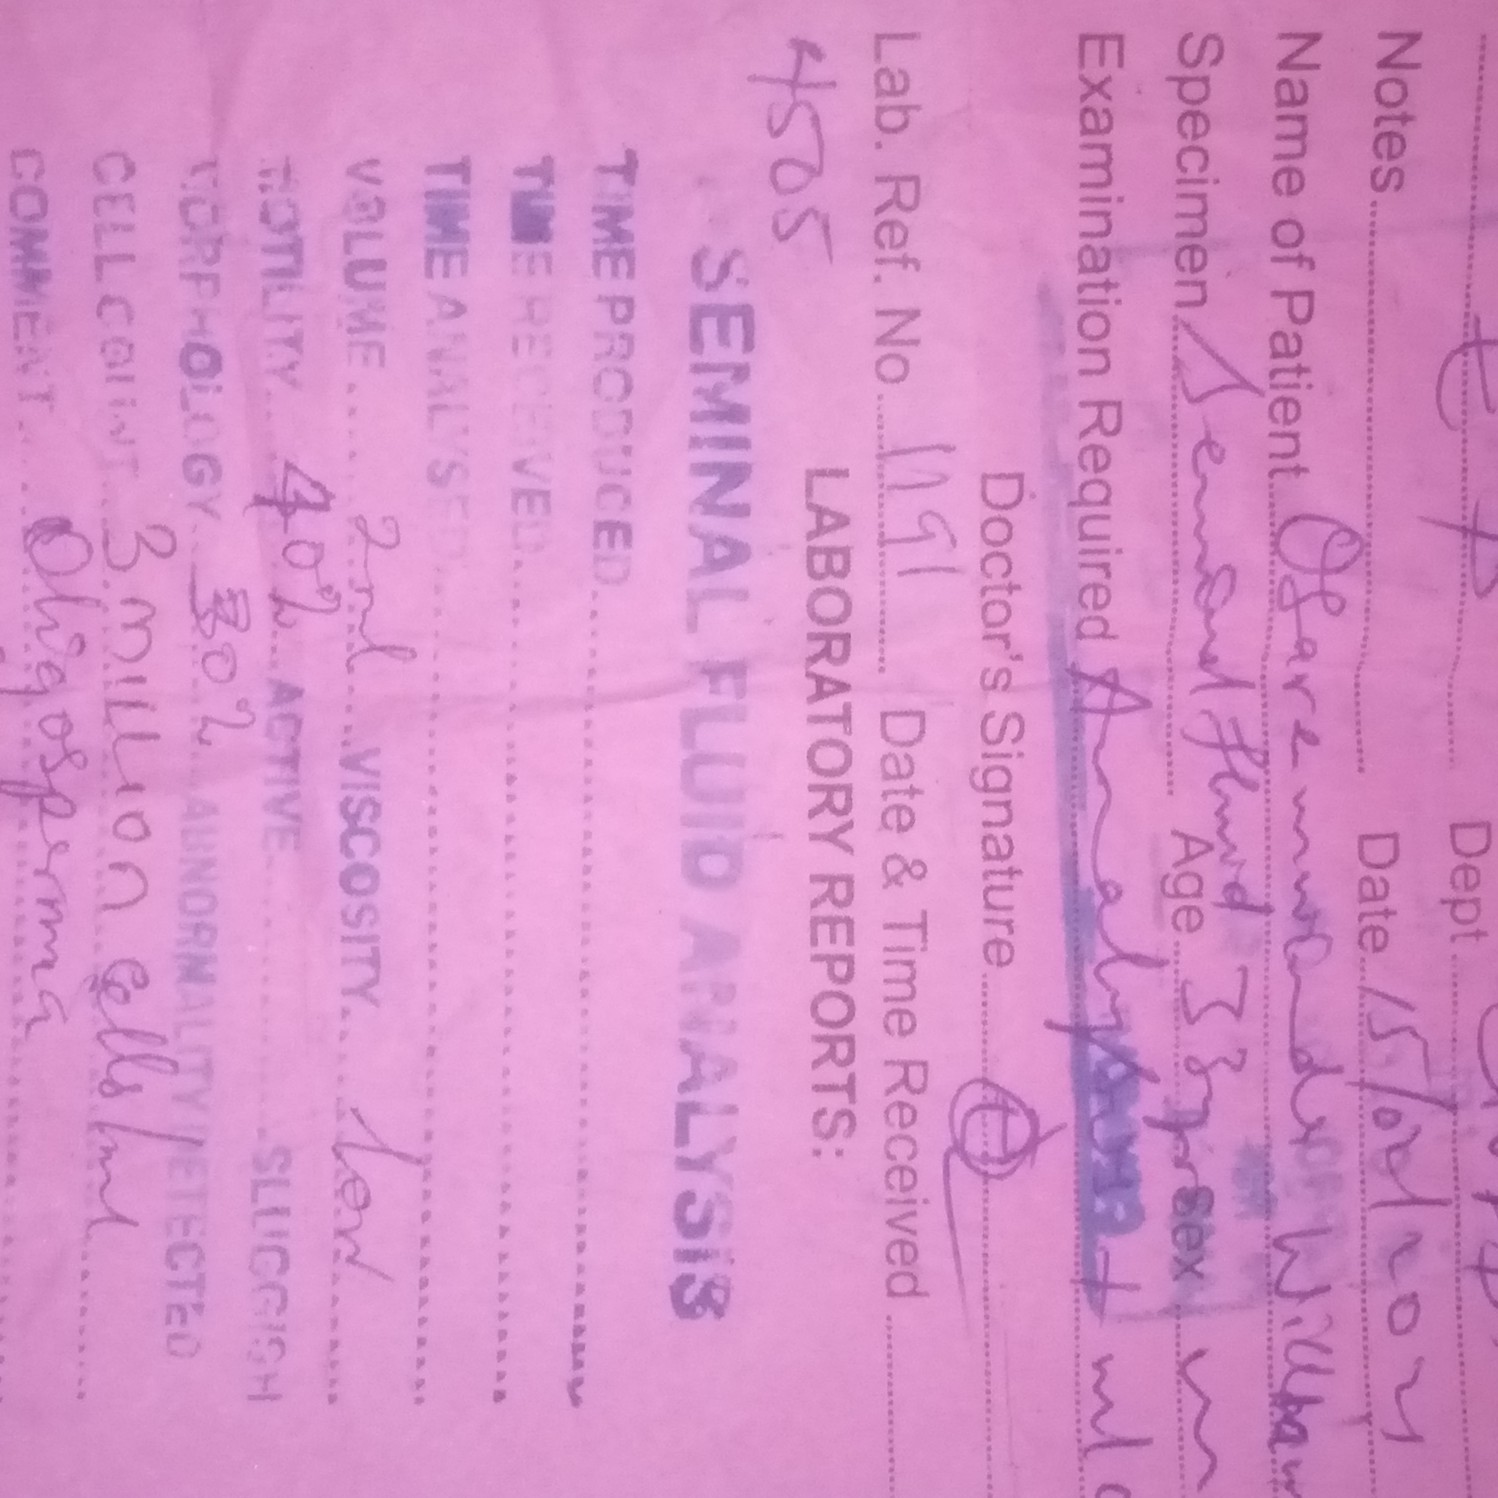 Dept
Notes Date 15/02/2021
Name of Patient William
Specimen Seminal Fluid Age 33yrs Sex m
Examination Required Analysis + m/c
Doctor's Signature
Lab. Ref. No 1191 Date & Time Received
LABORATORY REPORTS:
4505
SEMINAL FLUID ANALYSIS
TIME PRODUCED
TIME RECEIVED
TIME ANALYSED
VOLUME 2ml VISCOSITY
MOTILITY 40% ACTIVE SLUGGISH
MORPHOLOGY 30% ABNORMALITY DETECTED
CELL COUNT 3 million cells/ml
COMMENT Oligosperma